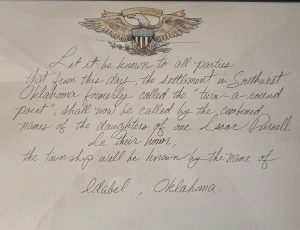 Let it be known to all parties
that from this day, the settlement in Southwest
Oklahoma formerly called the "turn-a-round
point", shall now be called by the combined
names of the daughters of one Isaac Purnell
In their honor,
the township will be known by the name of
Idabel, Oklahoma.